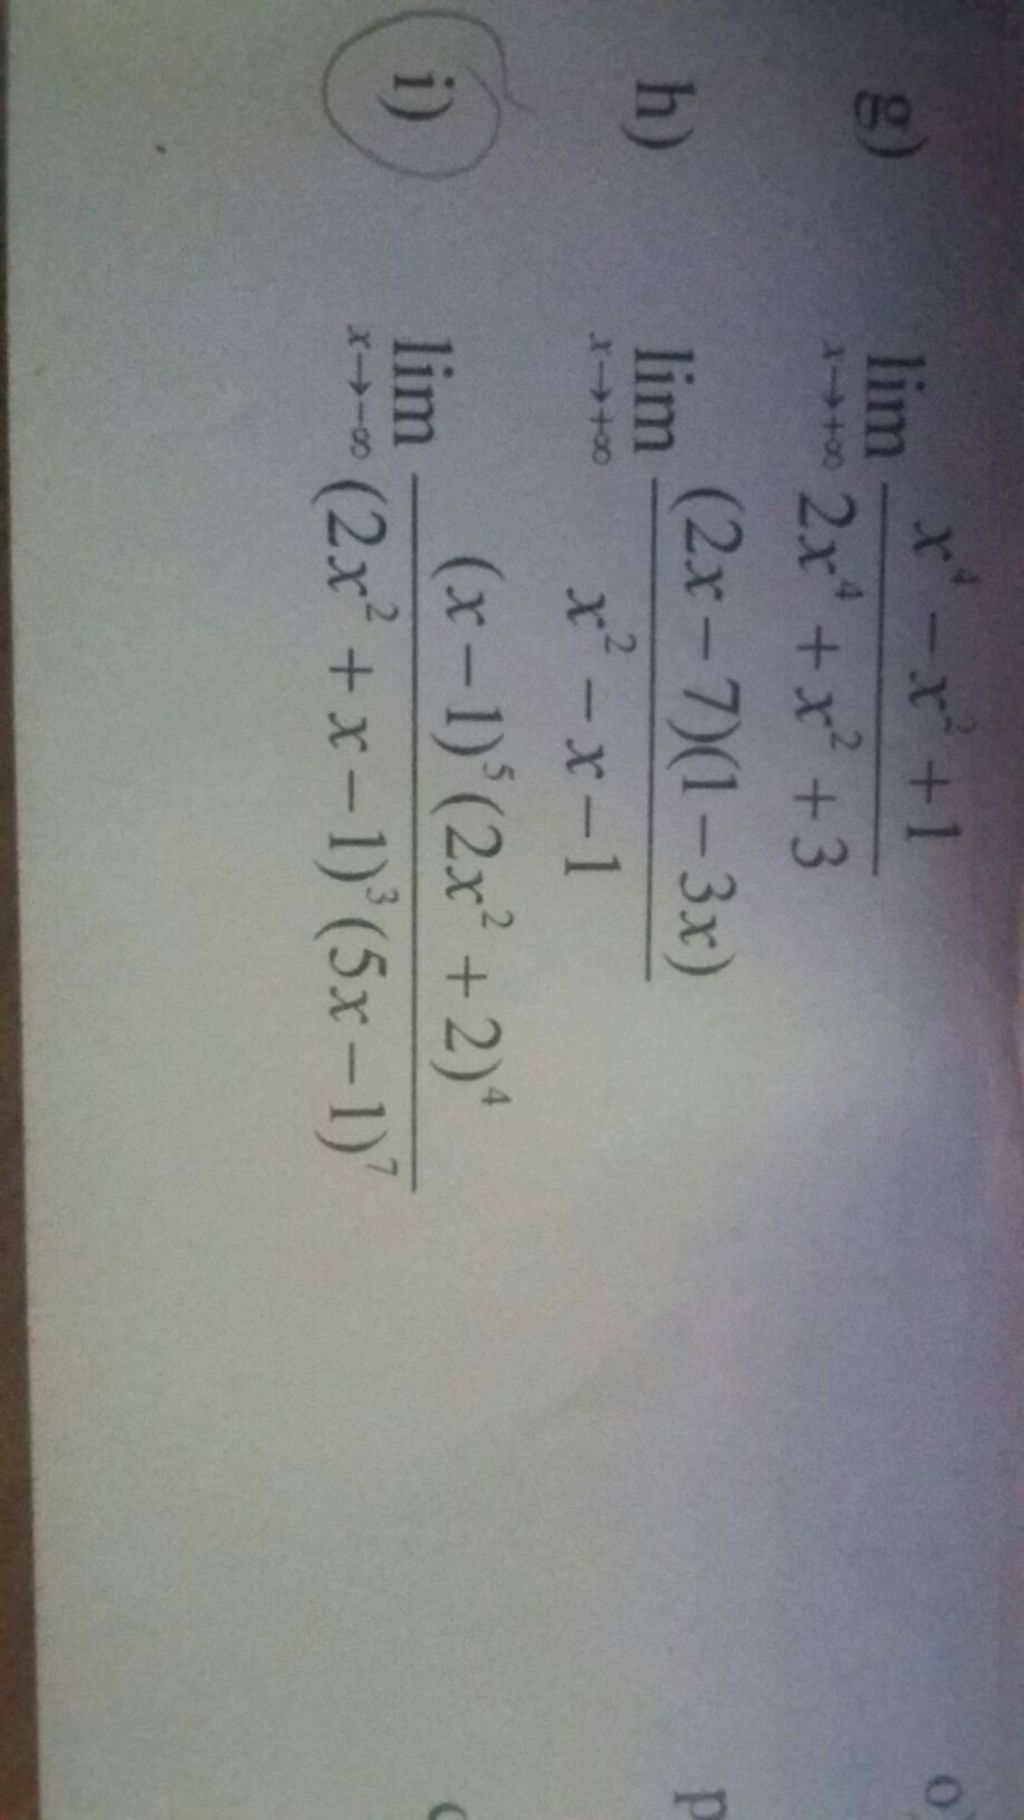 g) lim x→+∞ (x⁴ − x² + 1) / (2x⁴ + x² + 3)
o
h) lim x→+∞ (2x − 7)(1 − 3x) / (x² − x − 1)
p
i) lim x→−∞ (x − 1)⁵(2x² + 2)⁴ / (2x² + x − 1)³(5x − 1)⁷